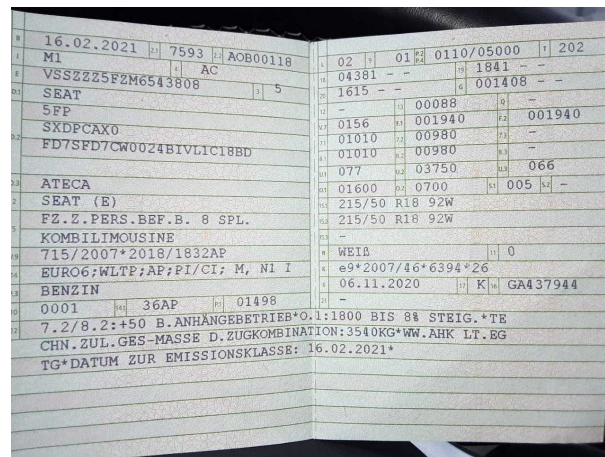 B 16.02.2021 2.1 7593 2.2 AOB00118
J M1 4 AC
E VSSZZZ5FZM6543808 3 5
D.1 SEAT
5FP
D.2 SXDPCAX0
FD7SFD7CW0024BIVL1C18BD
D.3 ATECA
2 SEAT (E)
5 FZ.Z.PERS.BEF.B. 8 SPL.
KOMBILIMOUSINE
V.9 715/2007*2018/1832AP
EURO6;WLTP;AP;PI/CI; M, N1 I
P.3 BENZIN
10 0001 14.1 36AP P.1 01498
22 7.2/8.2:+50 B.ANHÄNGEBETRIEB*O.1:1800 BIS 8% STEIG.*TE
CHN.ZUL.GES-MASSE D.ZUGKOMBINATION:3540KG*WW.AHK LT.EG
TG*DATUM ZUR EMISSIONSKLASSE: 16.02.2021*
L 02 9 01 P.2 P.4 0110/05000 T 202
18 04381 - - 19 1841 - -
20 1615 - - G 001408 - -
12 - 13 00088 Q -
V.7 0156 F.1 001940 F.2 001940
7.1 01010 7.2 00980 7.3 -
8.1 01010 8.2 00980 8.3 -
U.1 077 U.2 03750 U.3 066
O.1 01600 O.2 0700 S.1 005 S.2 -
15.1 215/50 R18 92W
15.2 215/50 R18 92W
15.3 -
R WEIß 11 0
K e9*2007/46*6394*26
6 06.11.2020 17 K 16 GA437944
21 -